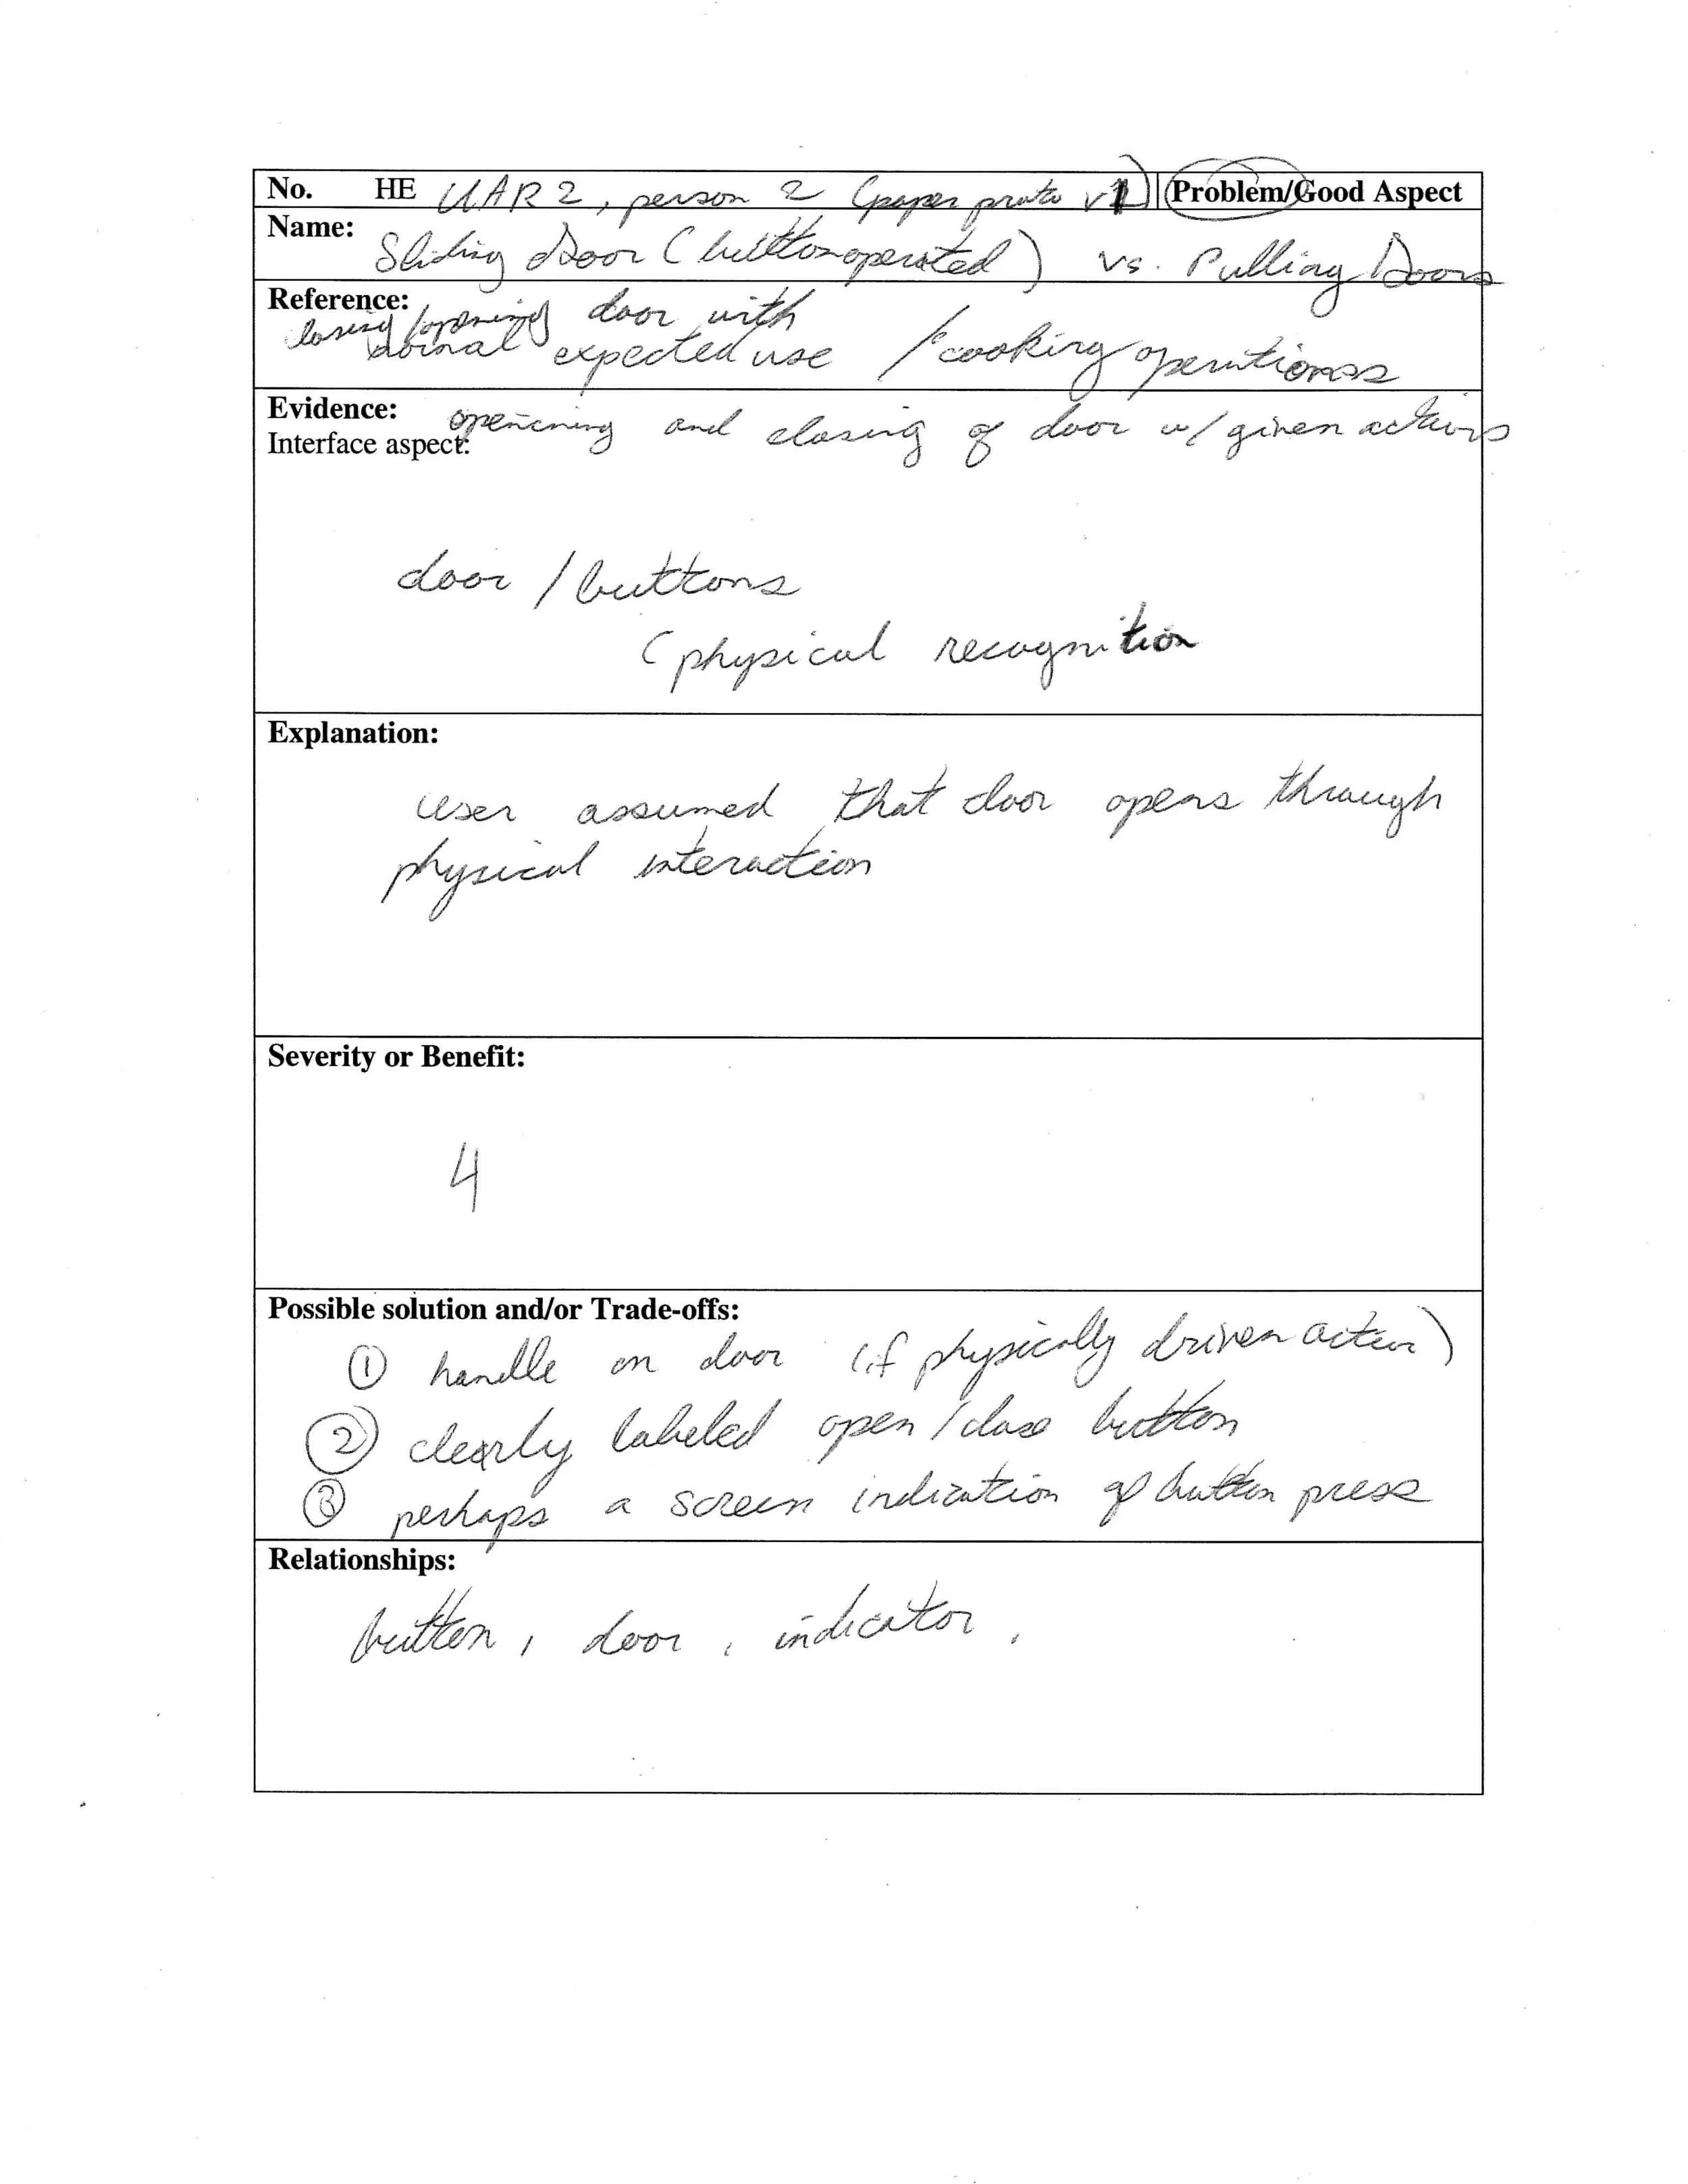 No. HE UAR 2, person 2 (paper proto v1) Problem/Good Aspect
Name:
Sliding door (button operated) vs. Pulling Doors
Reference:
losing/opening door with
normal expected use / cooking operations
Evidence: openening and closing of door w/ given actions
Interface aspect:
door / buttons
(physical recognition
Explanation:
User assumed that door opens through
physical interaction
Severity or Benefit:
4
Possible solution and/or Trade-offs:
① handle on door (if physically driven action)
② clearly labeled open/close button
③ perhaps a screen indication of button press
Relationships:
button, door, indicator,